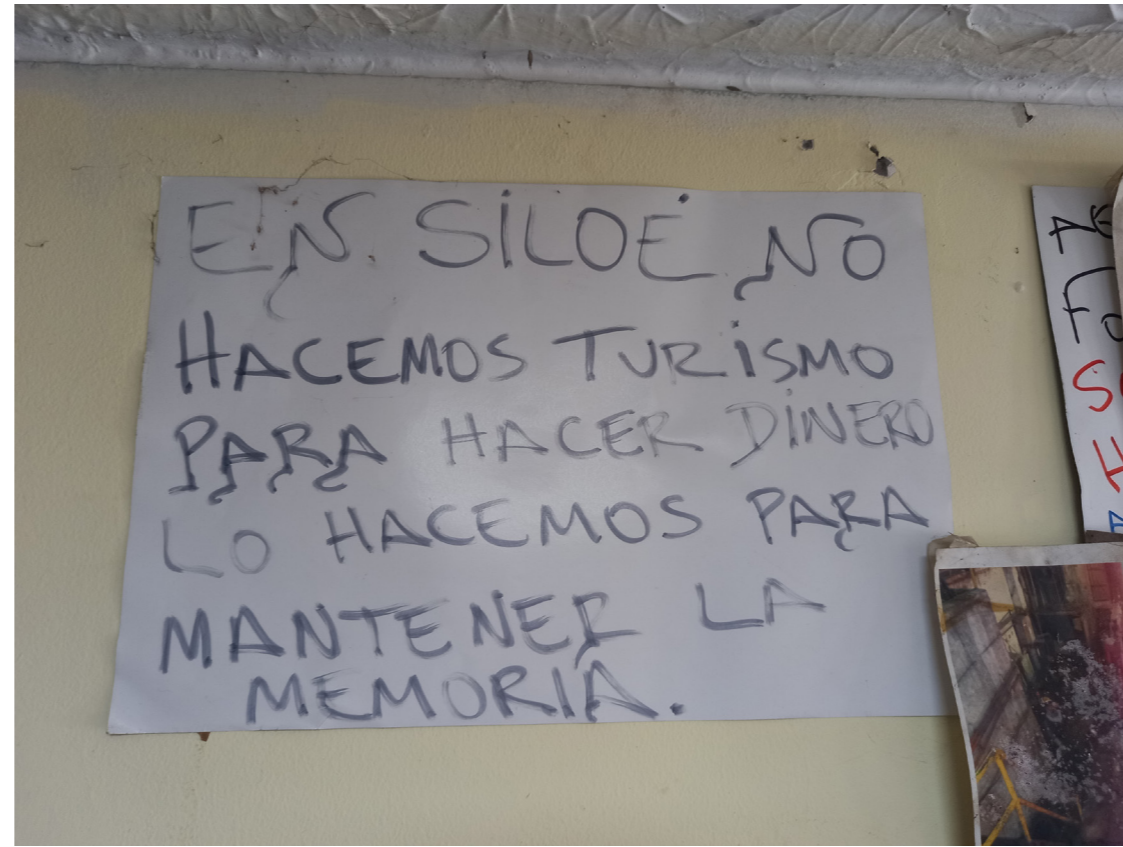 EN SILOE NO
HACEMOS TURISMO
PARA HACER DINERO
LO HACEMOS PARA
MANTENER LA
MEMORIA.